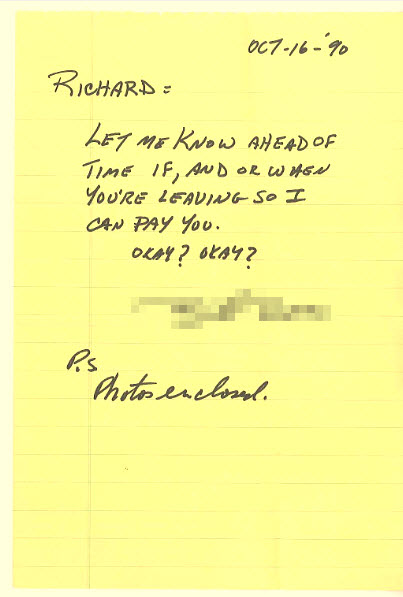 OCT-16-'90
RICHARD =
LET ME KNOW AHEAD OF
TIME IF, AND OR WHEN
YOU'RE LEAVING SO I
CAN PAY YOU.
OKAY? OKAY?
P.S
Photos enclosed.